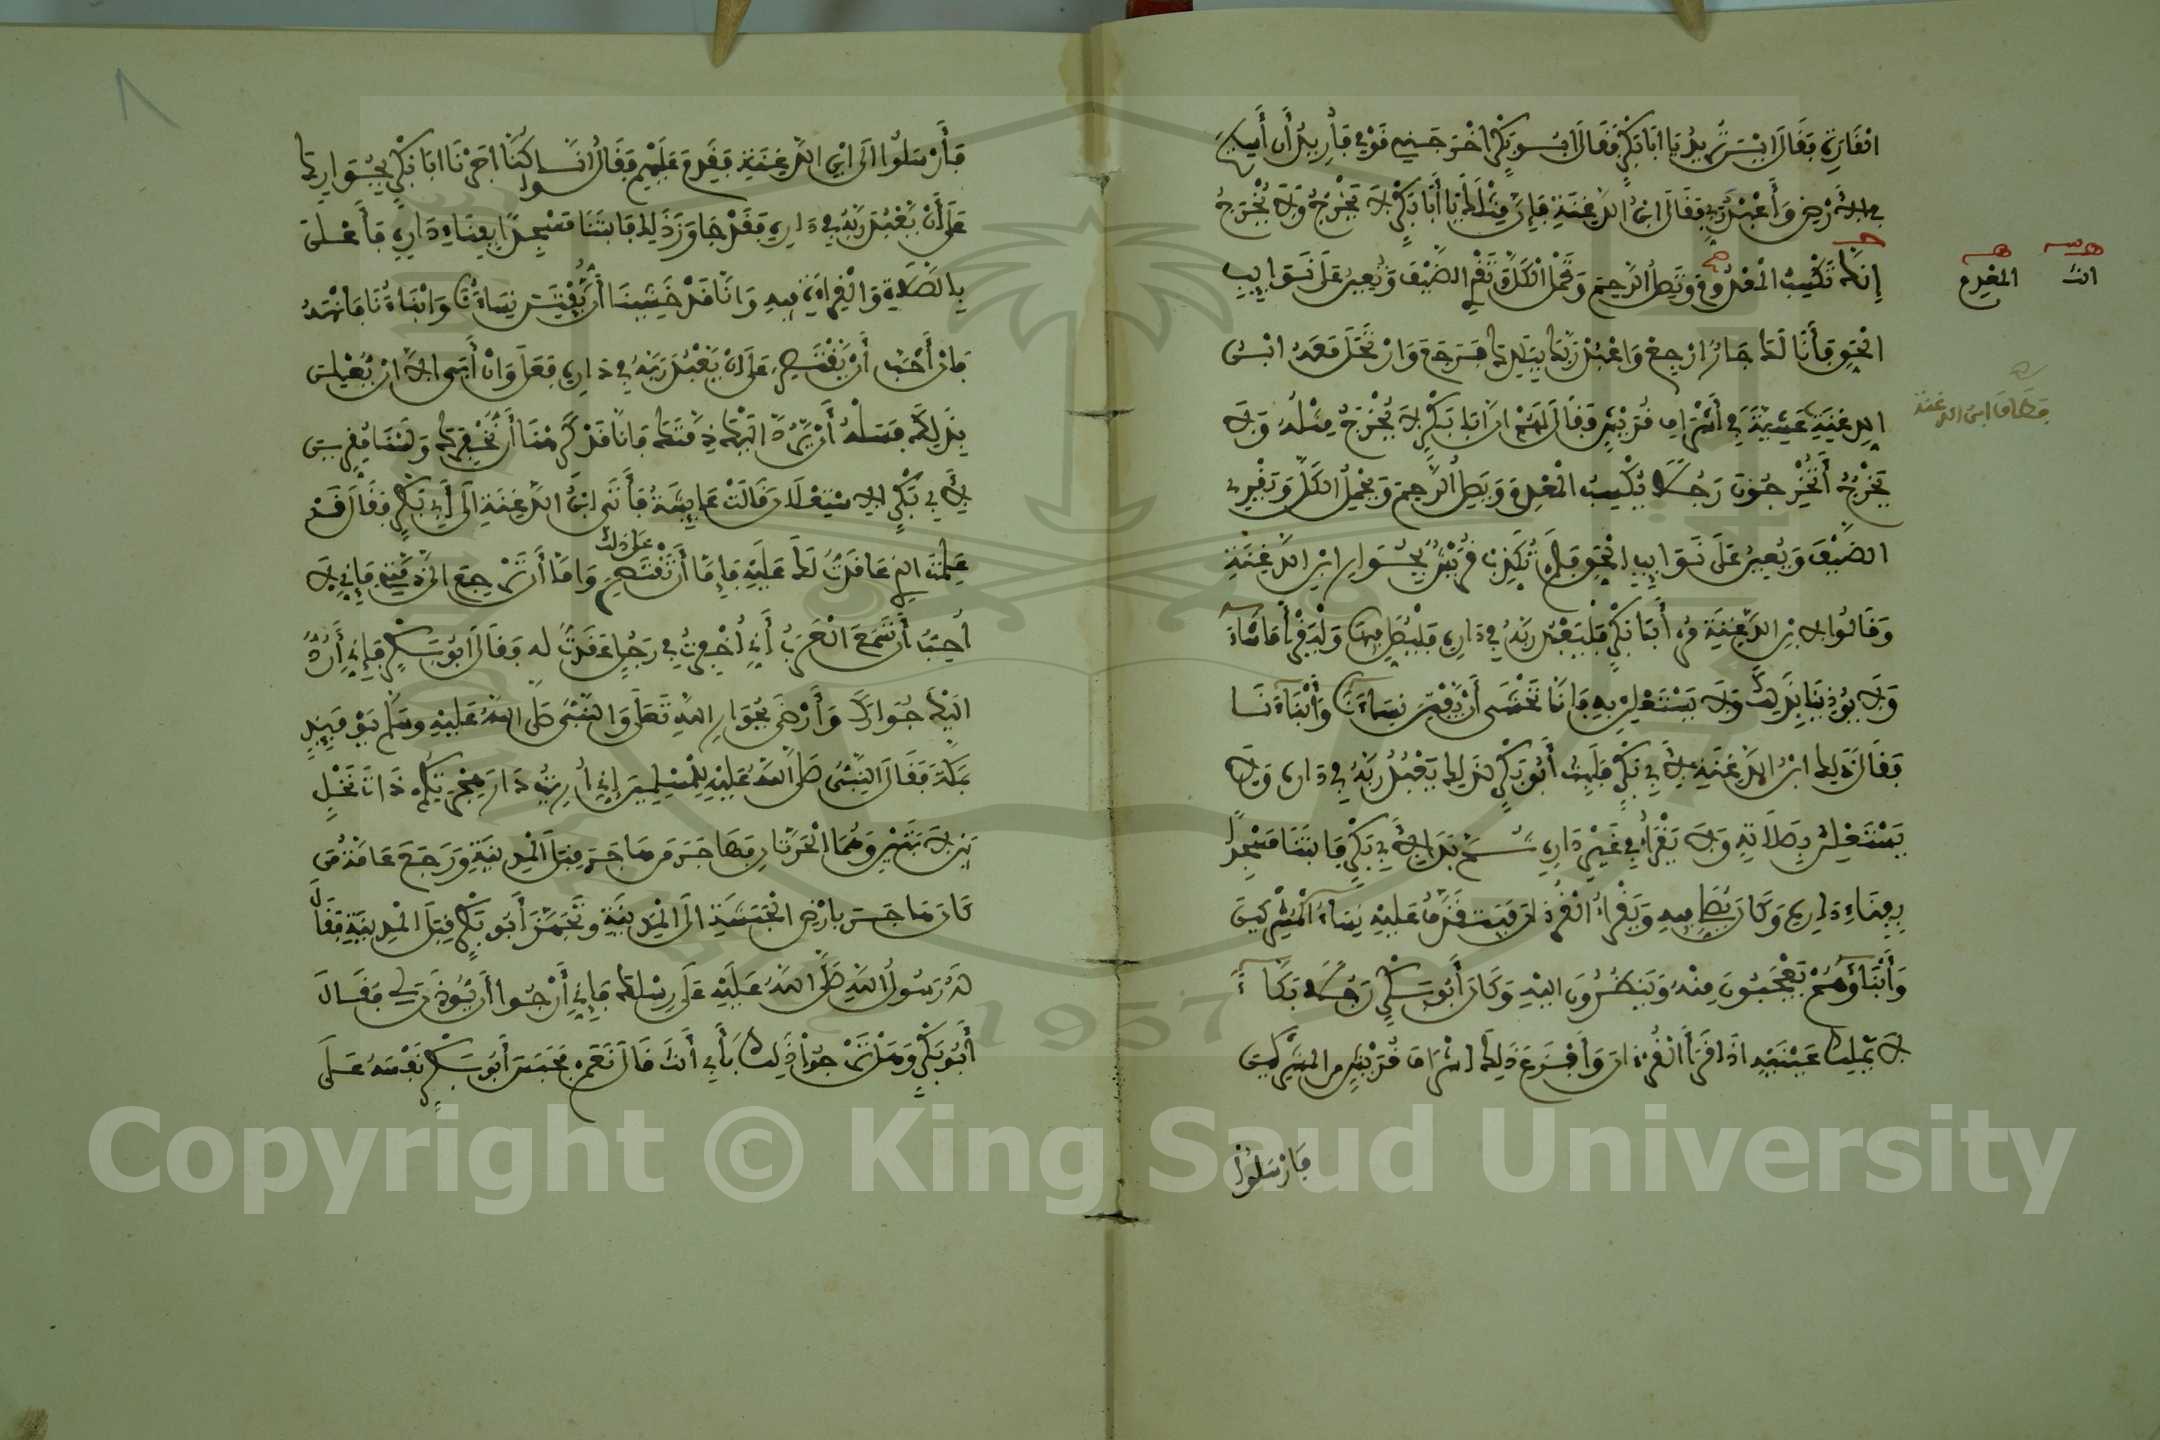 القارة فقال اين تريد يا ابا بكر فقال ابو بكر اخرجني قومي فأريد أن أسيح
في الارض وأعبد ربي فقال ابن الدغنة فإن مثلك يا أبا بكر لا يخرج ولا يخرج
إنك تكسب المعدوم وتصل الرحم وتحمل الكل وتقري الضيف وتعين على نوايب
الحق فأنا لك جار ارجع واعبد ربك ببلدك فرجع وارتحل معه ابن
الدغنة عشية في أشراف قريش فقال لهم ان ابا بكر لا يخرج مثله ولا
يخرج أتخرجون رجلا يكسب المعدم ويصل الرحم ويحمل الكل ويقري
الضيف ويعين على نوايب الحق فلم تكذب قريش بجوار ابن الدغنة
وقالوا لابن الدغنة مر أبا بكر فليعبد ربه في داره فليصل فيها وليقرأ ما شاء
ولا يوذينا بذلك ولا يستعلن به فانا نخشى أن يفتن نساءنا وأبناءنا
فقال ذلك ابن الدغنة لأبي بكر فلبث أبو بكر بذلك يعبد ربه في داره ولا
يستعلن بصلاته ولا يقرأ في غير داره ثم بدا لأبي بكر فابتنا مسجدا
بفناء داره وكان يصلي فيه ويقرأ القرءان فيتقذف عليه نساء المشركين
وأبناؤهم يعجبون منه وينظرون اليه وكان أبو بكر رجلا بكاء
لا يملك عينيه اذا قرأ القرءان وأفزع ذلك اشراف قريش من المشركين
فارسلوا
انك
المعدم
فطاف ابن الدغنة
فأرسلوا الى ابن الدغنة فقدم عليهم فقالوا انا كنا اجرنا ابا بكر بجوارك
على أن يعبد ربه في داره فقد جاوز ذلك فابتنا مسجدا بفناء داره فأعلن
بالصلاة والقراءة فيه وانا قد خشينا أن يفتن نساءنا وابناءنا فانهه
فان أحب أن يقتصر على ان يعبد ربه في داره فعل وان أبى الا ان يعلن
بذلك فسله أن يرد اليك ذمتك فانا قد كرهنا أن نخفرك ولسنا مقرين
لأبي بكر الاستعلان قالت عايشة فأتى ابن الدغنة الى أبي بكر فقال قد
علمت الذي عاقدت لك عليه فإما أن تقتصر على ذلك واما أن ترجع الي ذمتي فإني لا
أحب أن تسمع العرب أني أخفرت في رجل عقدت له فقال ابو بكر فإني أرد
اليك جوارك وأرضى بجوار الله تعلى والنبي صلى الله عليه وسلم يوميذ
بمكة فقال النبي صلى الله عليه للمسلمين إني أريت دار هجرتكم ذات نخل
بين لابتين وهما الحرتان فهاجر من هاجر قبل المدينة ورجع عامة من
كان هاجر بارض الحبشة الى المدينة وتجهز أبو بكر قبل المدينة فقال
له رسول الله صلى الله عليه على رسلك فإني أرجوا أن يوذن لي فقال
أبو بكر وهل ترجوا ذلك بأبي أنت قال نعم فحبس أبو بكر نفسه على